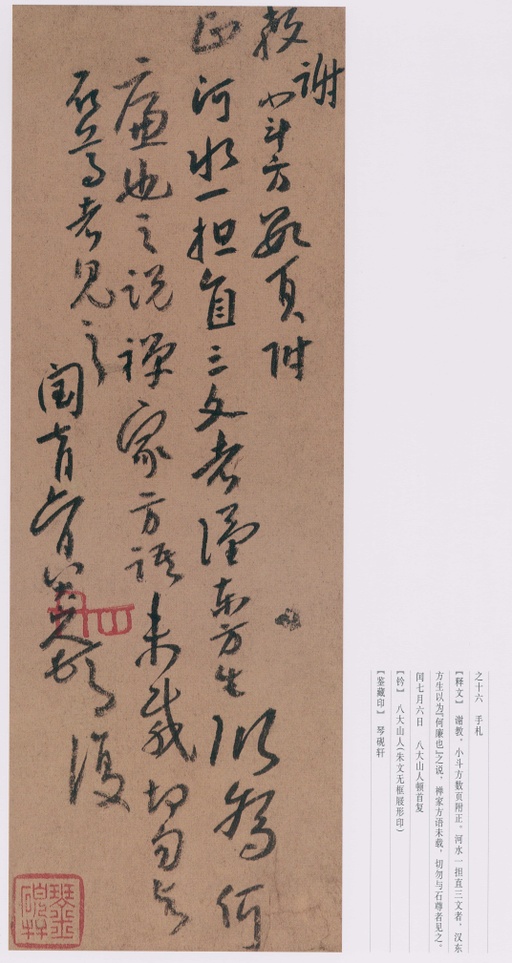 謝
教小斗方數頁附
正河水一担直三文者漢東方生以為何
廉也之說禪家方語未載切勿与
石尊者見之
閏七月六日八大山人頓首復
琴硯軒
之十六　手札
【释文】　谢教。小斗方数页附正。河水一担直三文者，汉东
方生以为『何廉也』之说，禅家方语未载，切勿与石尊者见之。
闰七月六日　八大山人顿首复
【钤】　八大山人(朱文无框屐形印)
【鉴藏印】　琴砚轩